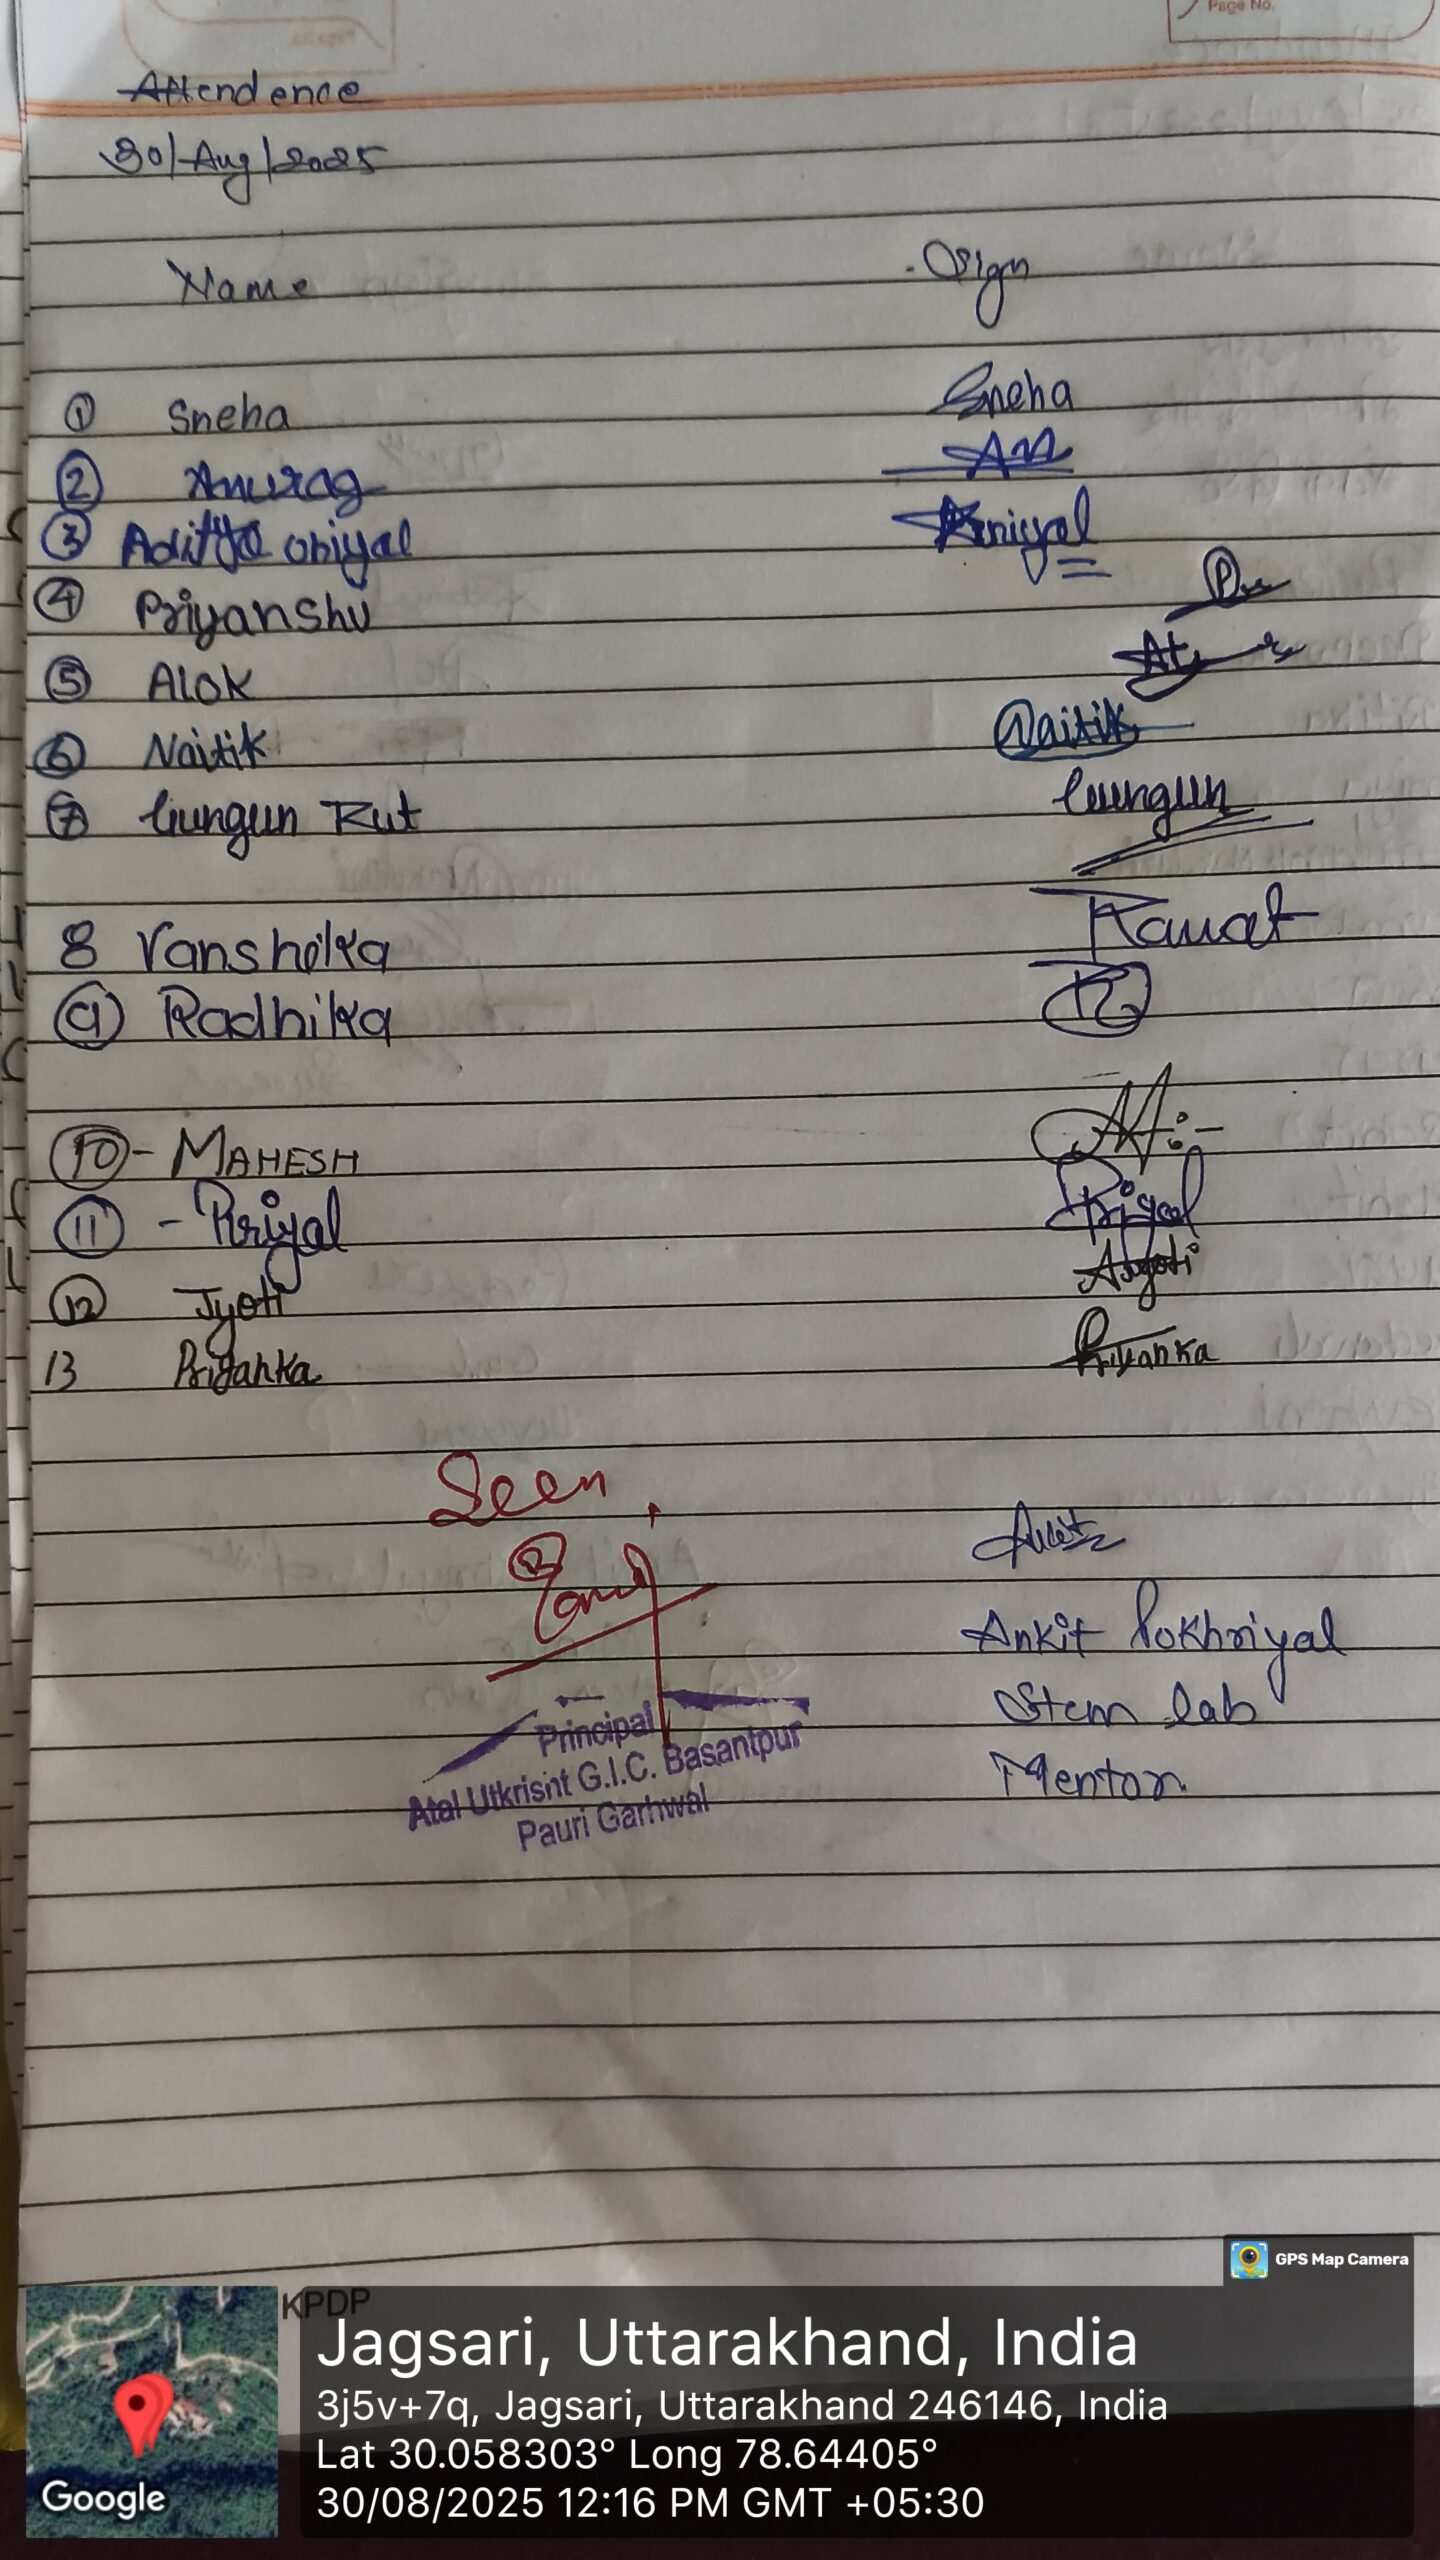 Page No.
Attendence
30/Aug/2025
Name Sign
1 Sneha Sneha
2 Anurag
3 Aditya oniyal
4 Priyanshu
5 Alok
6 Naitik Naitik
7 Gungun Rut Gungun
8 Vanshika Rawat
9 Radhika
10 - MAHESH
11 - Priyal Priyal
12 Jyoti Jyoti
13 Priyanka Priyanka
Seen
Ankit Pokhriyal
Stem lab
Mentor
Principal
Atal Utkrisht G.I.C. Basantpur
Pauri Garhwal
GPS Map Camera
KPDP
Jagsari, Uttarakhand, India
3j5v+7q, Jagsari, Uttarakhand 246146, India
Lat 30.058303° Long 78.64405°
30/08/2025 12:16 PM GMT +05:30
Google